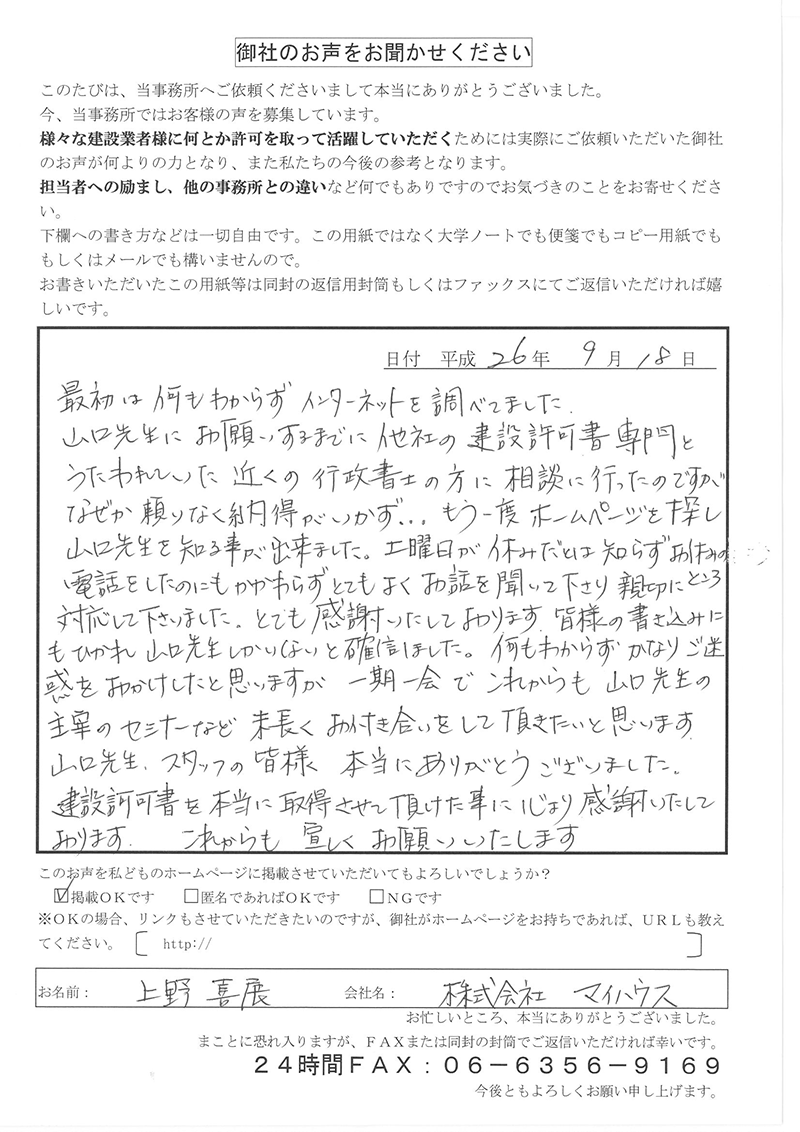 御社のお声をお聞かせください
このたびは、当事務所へご依頼くださいまして本当にありがとうございました。
今、当事務所ではお客様の声を募集しています。
様々な建設業者様に何とか許可を取って活躍していただくためには実際にご依頼いただいた御社
のお声が何よりの力となり、また私たちの今後の参考となります。
担当者への励まし、他の事務所との違いなど何でもありですのでお気づきのことをお寄せくださ
い。
下欄への書き方などは一切自由です。この用紙ではなく大学ノートでも便箋でもコピー用紙でも
もしくはメールでも構いませんので。
お書きいただいたこの用紙等は同封の返信用封筒もしくはファックスにてご返信いただければ嬉
しいです。
日付 平成 26年 9月 18日
最初は何もわからずインターネットを調べてました.
山口先生にお願いするまでに他社の建設許可書専門と
うたわれていた近くの行政書士の方に相談に行ったのですが
なぜか頼りなく納得がいかず... もう一度ホームページを探し
山口先生を知る事が出来ました。土曜日が休みだとは知らずお休みの
電話をしたのにもかかわらずとてもよくお話を聞いて下さり親切にところ
対応して下さいました。とても感謝いたしております.皆様の書き込みに
もひかれ山口先生しかいないと確信しました。何もわからずかなりご迷
惑をおかけしたと思いますが 一期一会でこれからも山口先生の
主宰のセミナーなど末長くお付き合いをして頂きたいと思います
山口先生.スタッフの皆様 本当にありがとうございました。
建設許可書を本当に取得させて頂けた事に心より感謝いたして
おります. これからも宜しくお願いいたします
このお声を私どものホームページに掲載させていただいてもよろしいでしょうか？
☑掲載ＯＫです □匿名であればＯＫです □ＮＧです
※ＯＫの場合、リンクもさせていただきたいのですが、御社がホームページをお持ちであれば、ＵＲＬも教え
てください。［ http:// ］
お名前： 上野 喜展 会社名： 株式会社 マイハウス
お忙しいところ、本当にありがとうございました。
まことに恐れ入りますが、ＦＡＸまたは同封の封筒でご返信いただければ幸いです。
２４時間ＦＡＸ：０６－６３５６－９１６９
今後ともよろしくお願い申し上げます。